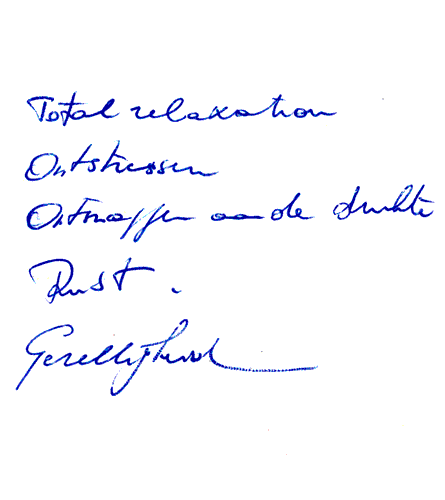 Total relaxation
Ontstressen
Ontsnappen aan de drukte
Rust.
Gezelligheid